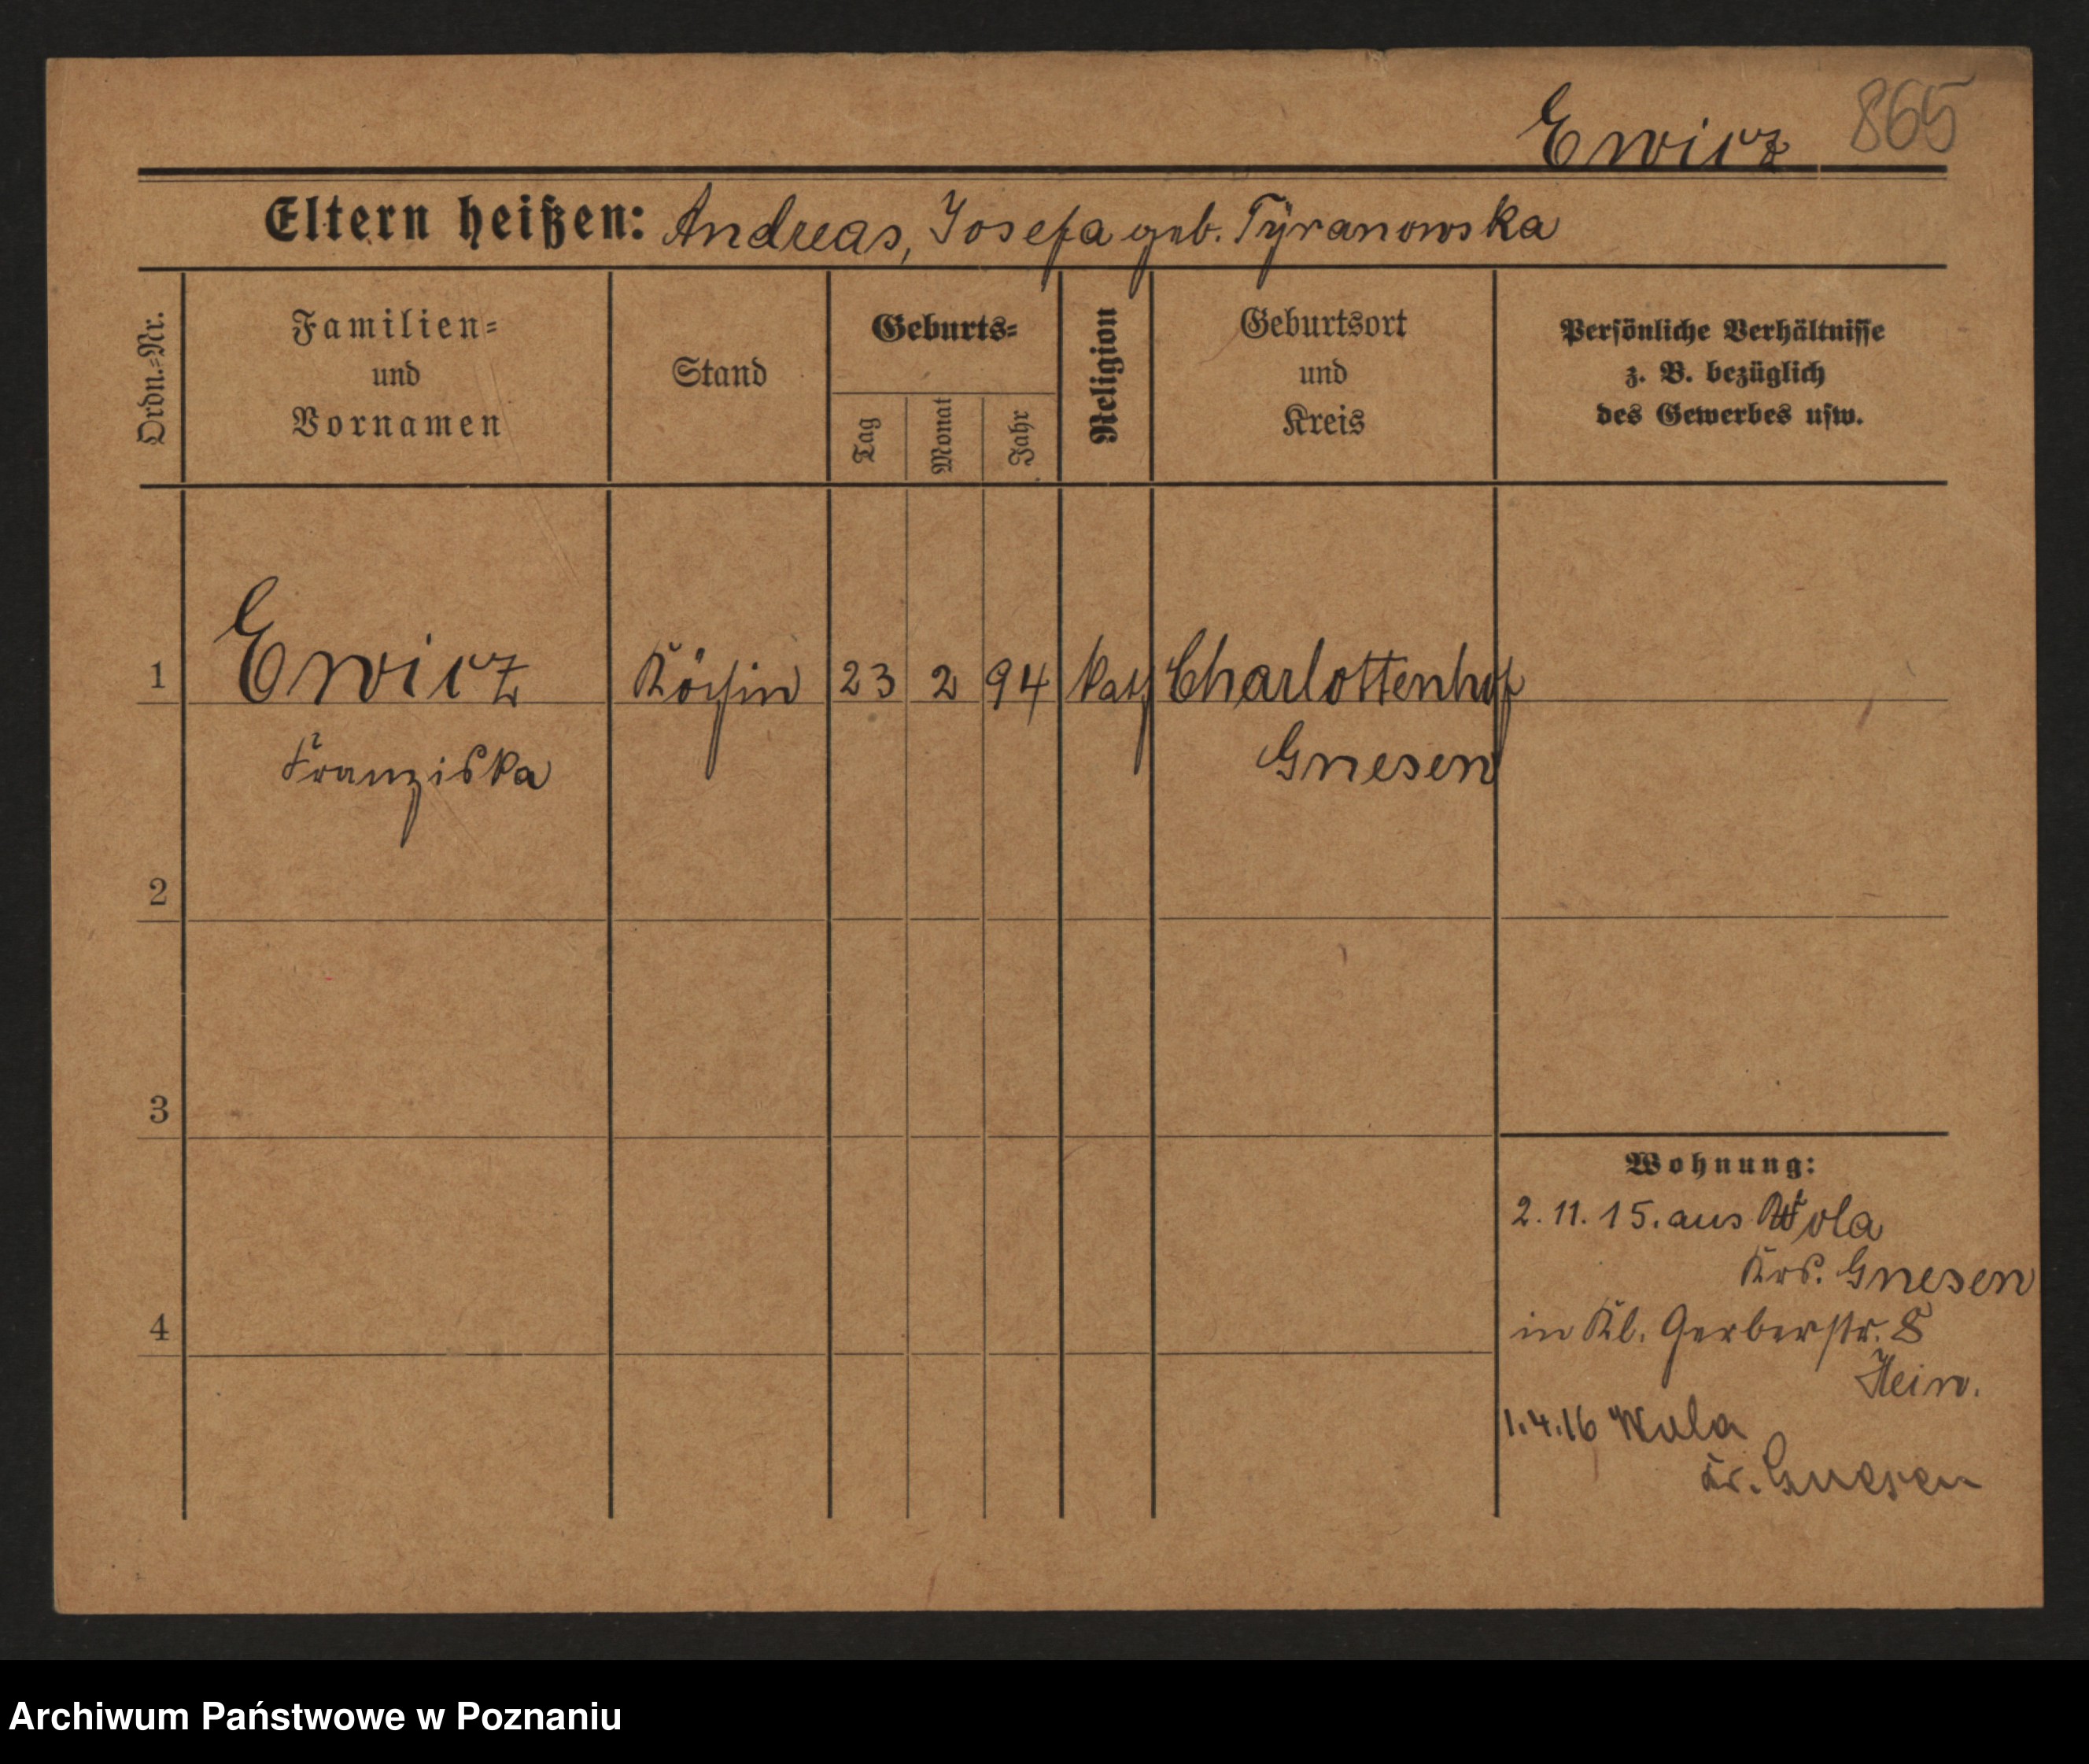 Ewicz 865
Eltern heißen: Andreas, Josefa geb. Tyranowska
Ordn.-Nr.
Familien-
und
Vornamen
Stand
Geburts-
Tag
Monat
Jahr
Religion
Geburtsort
und
Kreis
Persönliche Verhältnisse
z. B. bezüglich
des Gewerbes usw.
1 Ewicz Köchin 23 2 94 kath Charlottenhof
Franziska Gnesen
2
3
4
Wohnung:
2.11.15. aus Wola
Krs. Gnesen
in Kl. Gerberstr. 8
1.4.16 Wola
Kr. Gnesen
Archiwum Państwowe w Poznaniu